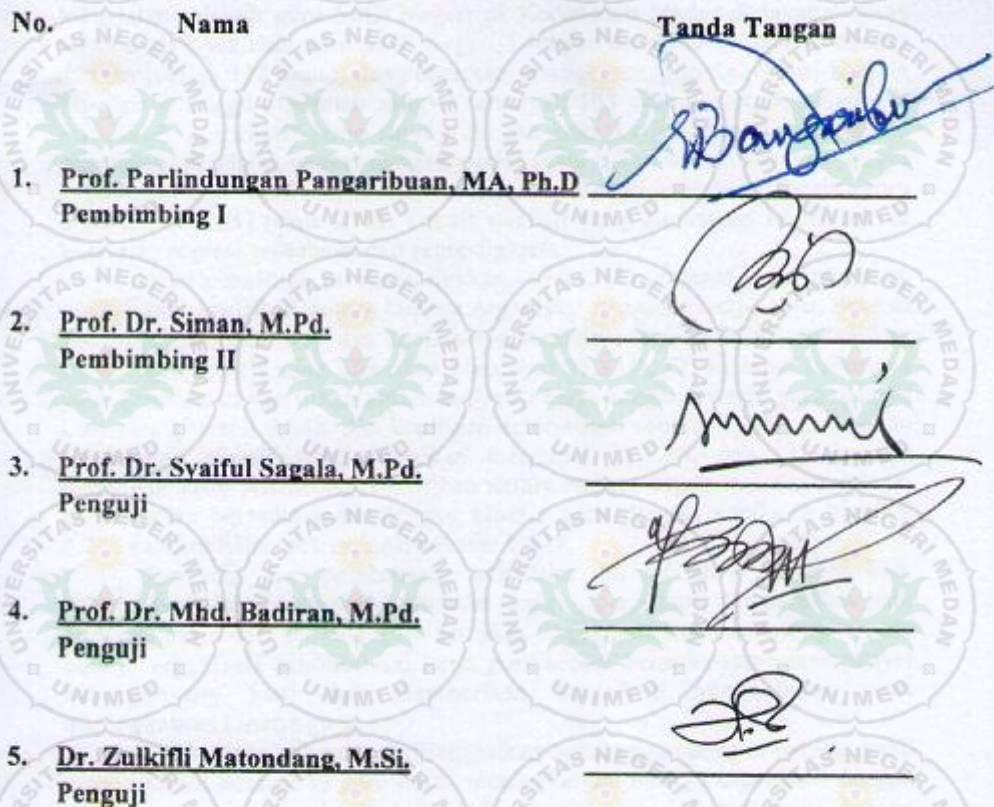 No. Nama Tanda Tangan
1. Prof. Parlindungan Pangaribuan, MA, Ph.D
Pembimbing I
2. Prof. Dr. Siman, M.Pd.
Pembimbing II
3. Prof. Dr. Syaiful Sagala, M.Pd.
Penguji
4. Prof. Dr. Mhd. Badiran, M.Pd.
Penguji
5. Dr. Zulkifli Matondang, M.Si.
Penguji
UNIVERSITAS NEGERI MEDAN
UNIMED